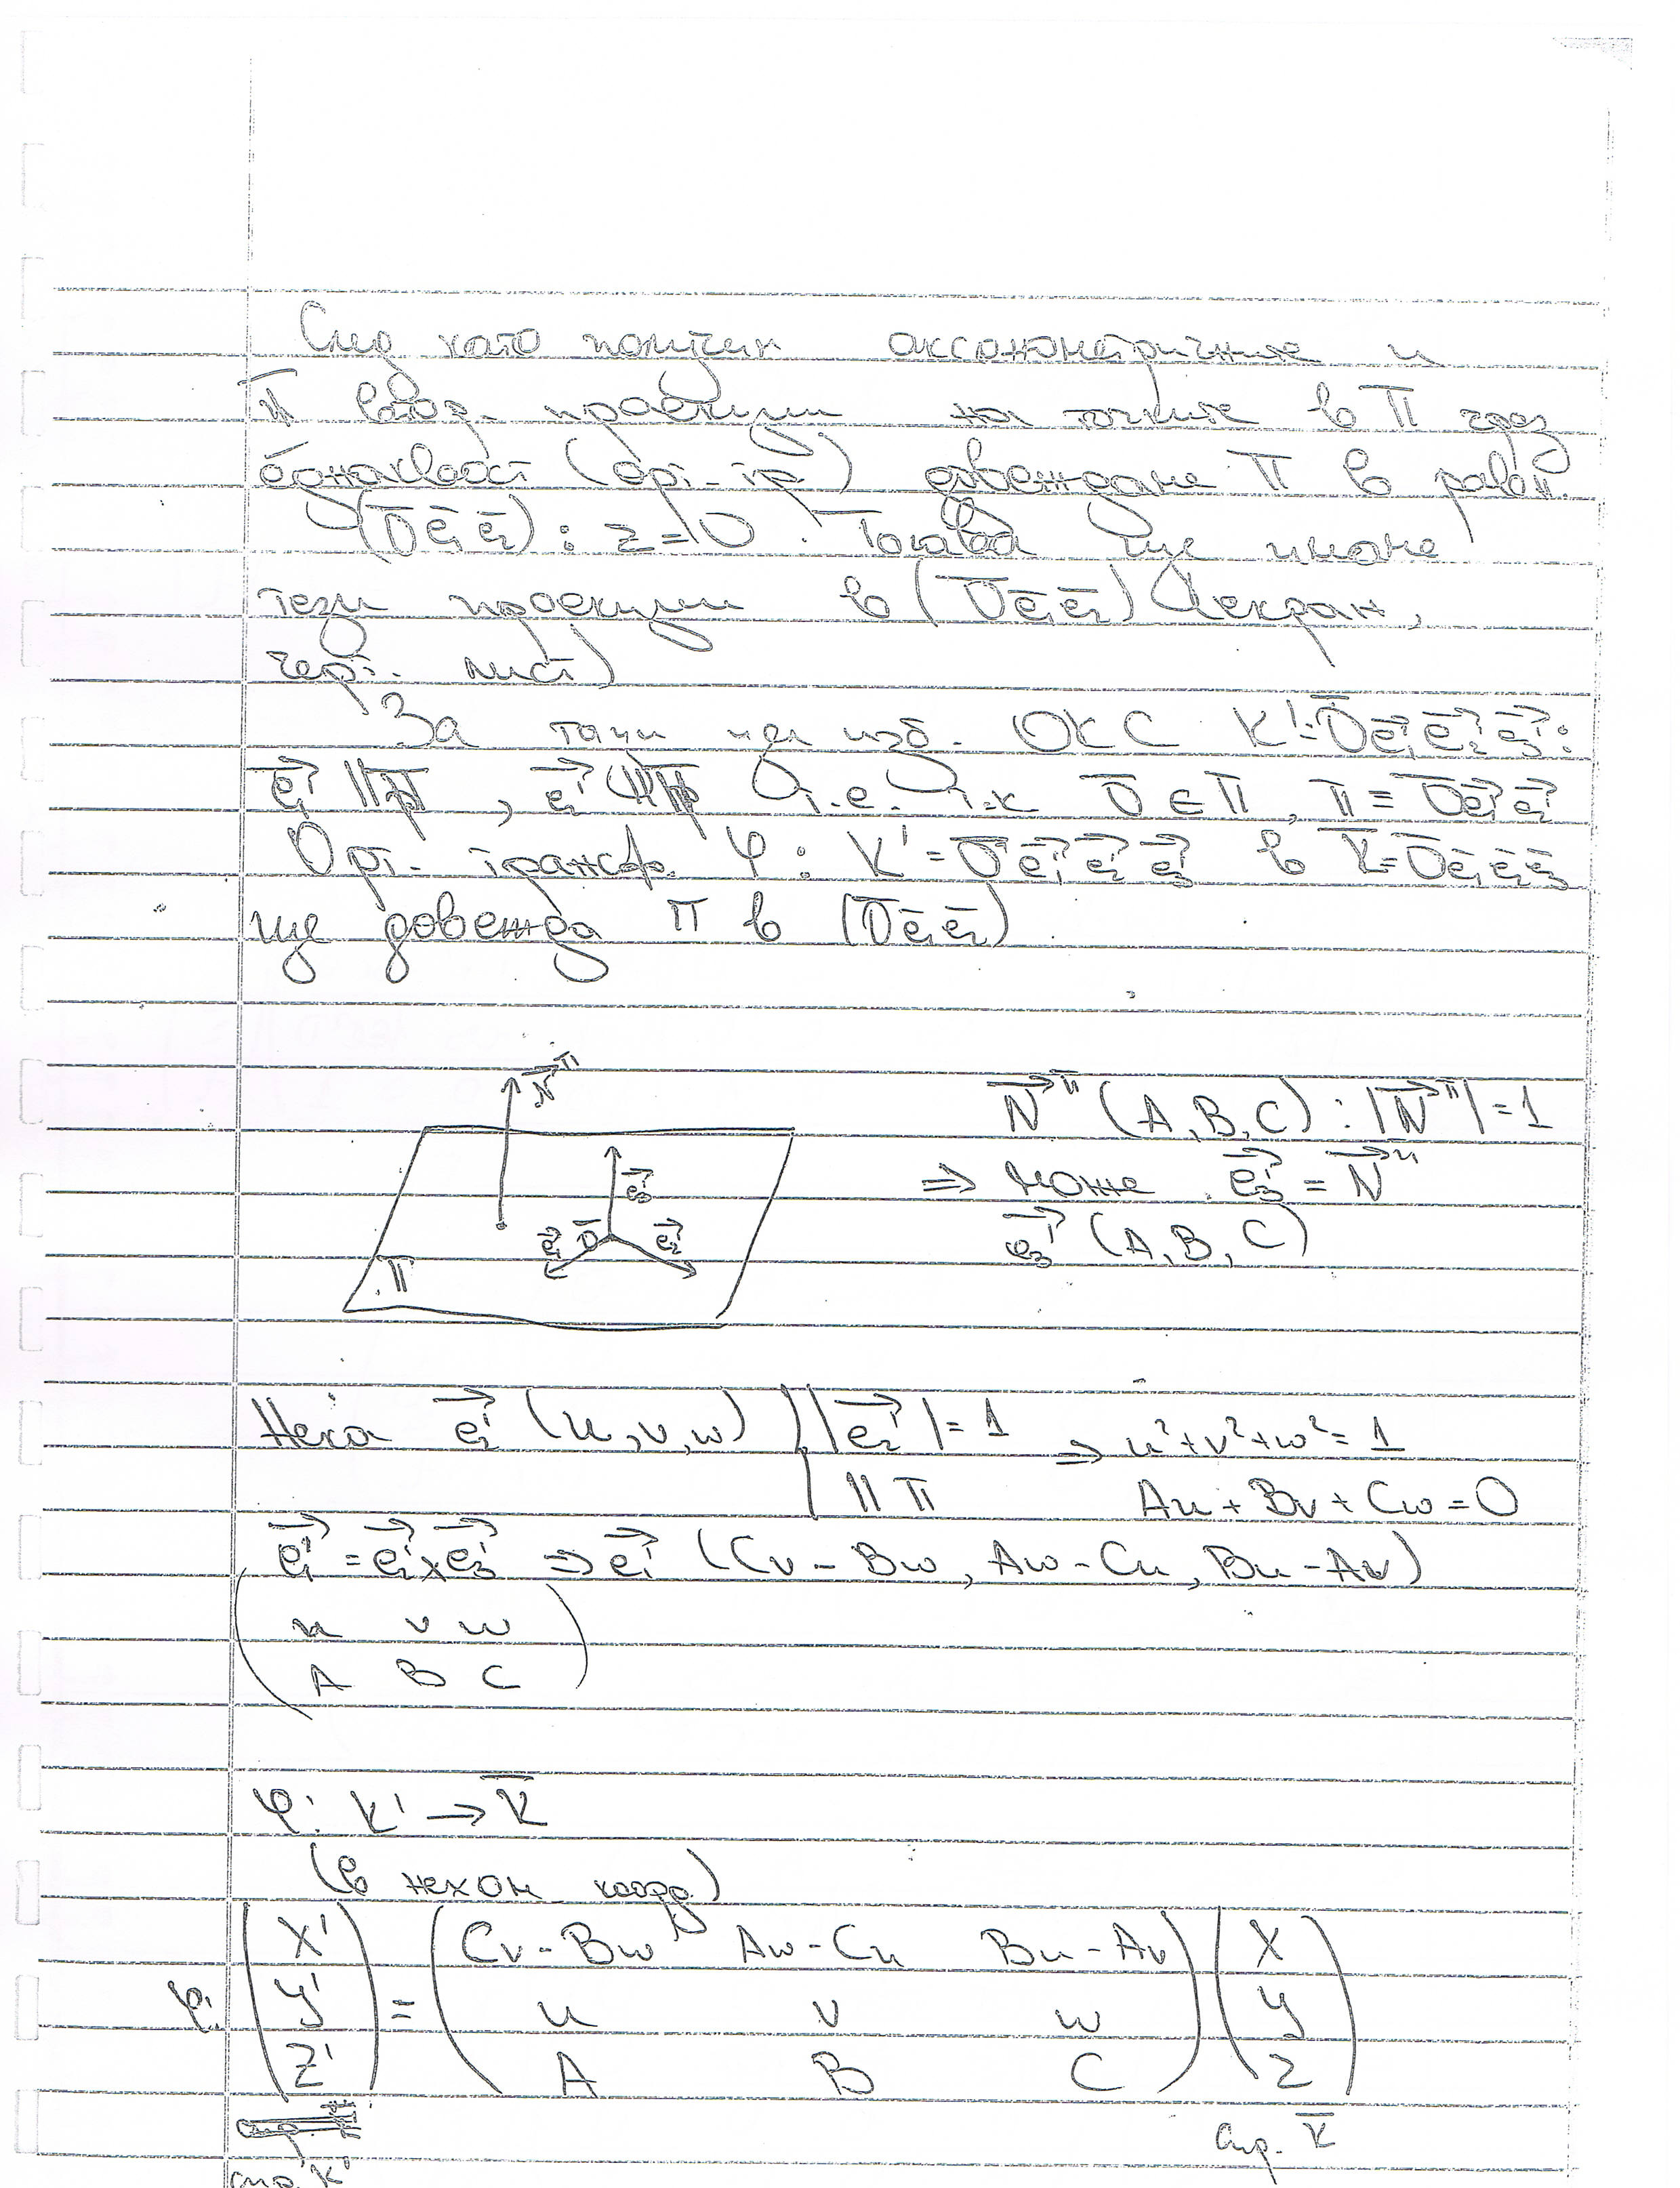 След като получим аксонометричните и
втор. проекции на точките в π чрез
еднаквост (орт. тр.) довеждаме π в равн.
(O̅e̅₁e̅₂) : z = 0. Тогава ще имаме
тези проекции в (O̅e̅₁e̅₂) (екран,
черт. лист)
За тази цел изб. ОКС K': O̅e⃗₁'e⃗₂'e⃗₃' :
e⃗₁' || π, e⃗₂' || π т.е. т.к. O̅ ∈ π, π = O̅e⃗₁'e⃗₂'
Орт. трансф. φ : K' = O̅e⃗₁'e⃗₂'e⃗₃' в K̅ = O̅e̅₁e̅₂e̅₃
ще довежда π в (O̅e̅₁e̅₂)
N⃗^π
N⃗^π (A, B, C) : |N⃗^π| = 1
⇒ може e⃗₃' = N⃗^π
e⃗₃' (A, B, C)
e⃗₃'
e⃗₁' O̅ e⃗₂'
π
Нека e⃗₂' (u, v, w) | |e⃗₂'| = 1 ⇒ u² + v² + w² = 1
|| π Au + Bv + Cw = 0
e⃗₁' = e⃗₂' × e⃗₃' ⇒ e⃗₁' (Cv - Bw, Aw - Cu, Bu - Av)
( u v w )
( A B C )
φ: K' → K̅
(в нехом. коорд.)
φ: ( x' ) = ( Cv - Bw Aw - Cu Bu - Av ) ( x )
( y' ) ( u v w ) ( y )
( z' ) ( A B C ) ( z )
спр. K̅
спр. K'